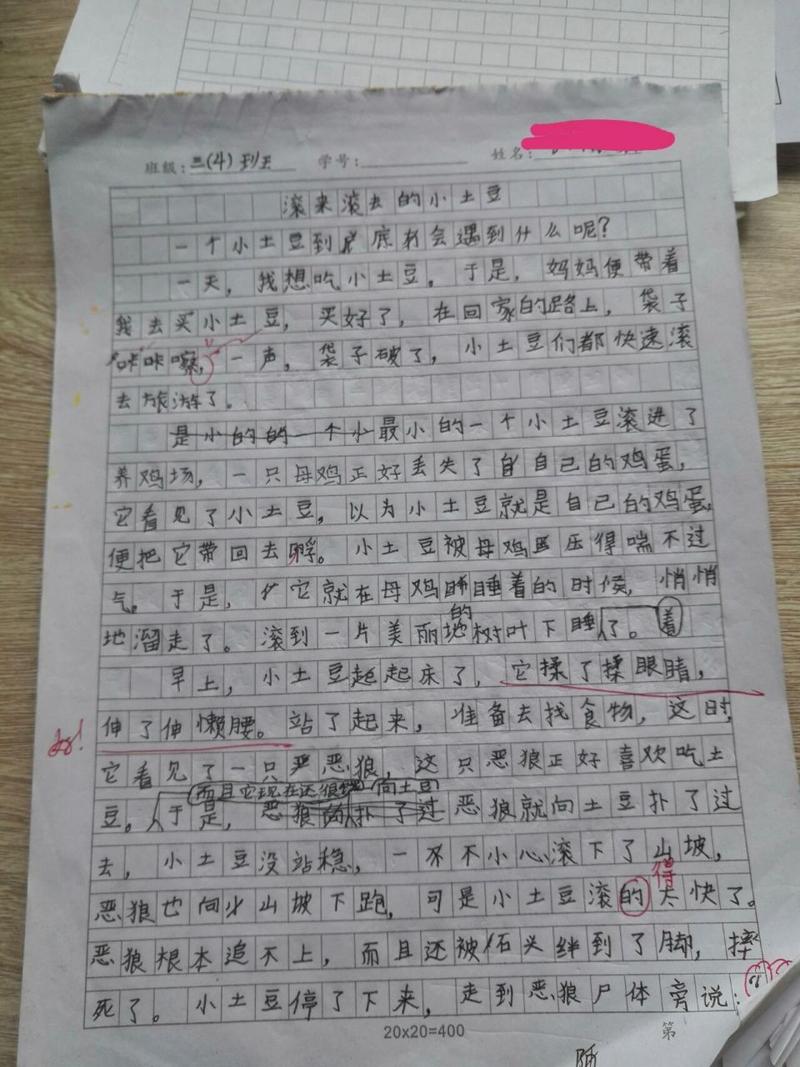 班级：三(4)班 学号： 姓名：
滚来滚去的小土豆
一个小土豆到底会遇到什么呢？
一天，我想吃小土豆。于是，妈妈便带着
我去买小土豆，买好了，在回家的路上，袋子
咔咔嚓，一声，袋子破了，小土豆们都快速滚
去旅游了。
是小的的一个小最小的一个小土豆滚进了
养鸡场，一只母鸡正好丢失了自己的鸡蛋，
它看见了小土豆，以为小土豆就是自己的鸡蛋，
便把它带回去孵。小土豆被母鸡压得喘不过
气。于是，它就在母鸡睡着的时候，悄悄
地溜走了。滚到一片美丽的树叶下睡了。着
早上，小土豆起床了，它揉了揉眼睛，
好！伸了伸懒腰。站了起来，准备去找食物，这时，
它看见了一只恶狼，这只恶狼正好喜欢吃土
而且它现在还很 向土豆
豆。于是，恶狼的扑了过恶狼就向土豆扑了过
去，小土豆没站稳，一不小心滚下了山坡，
得
恶狼也向山坡下跑，可是小土豆滚的太快了。
恶狼根本追不上，而且还被石头绊到了脚，摔
死了。小土豆停了下来，走到恶狼尸体旁说：“
20×20=400 第